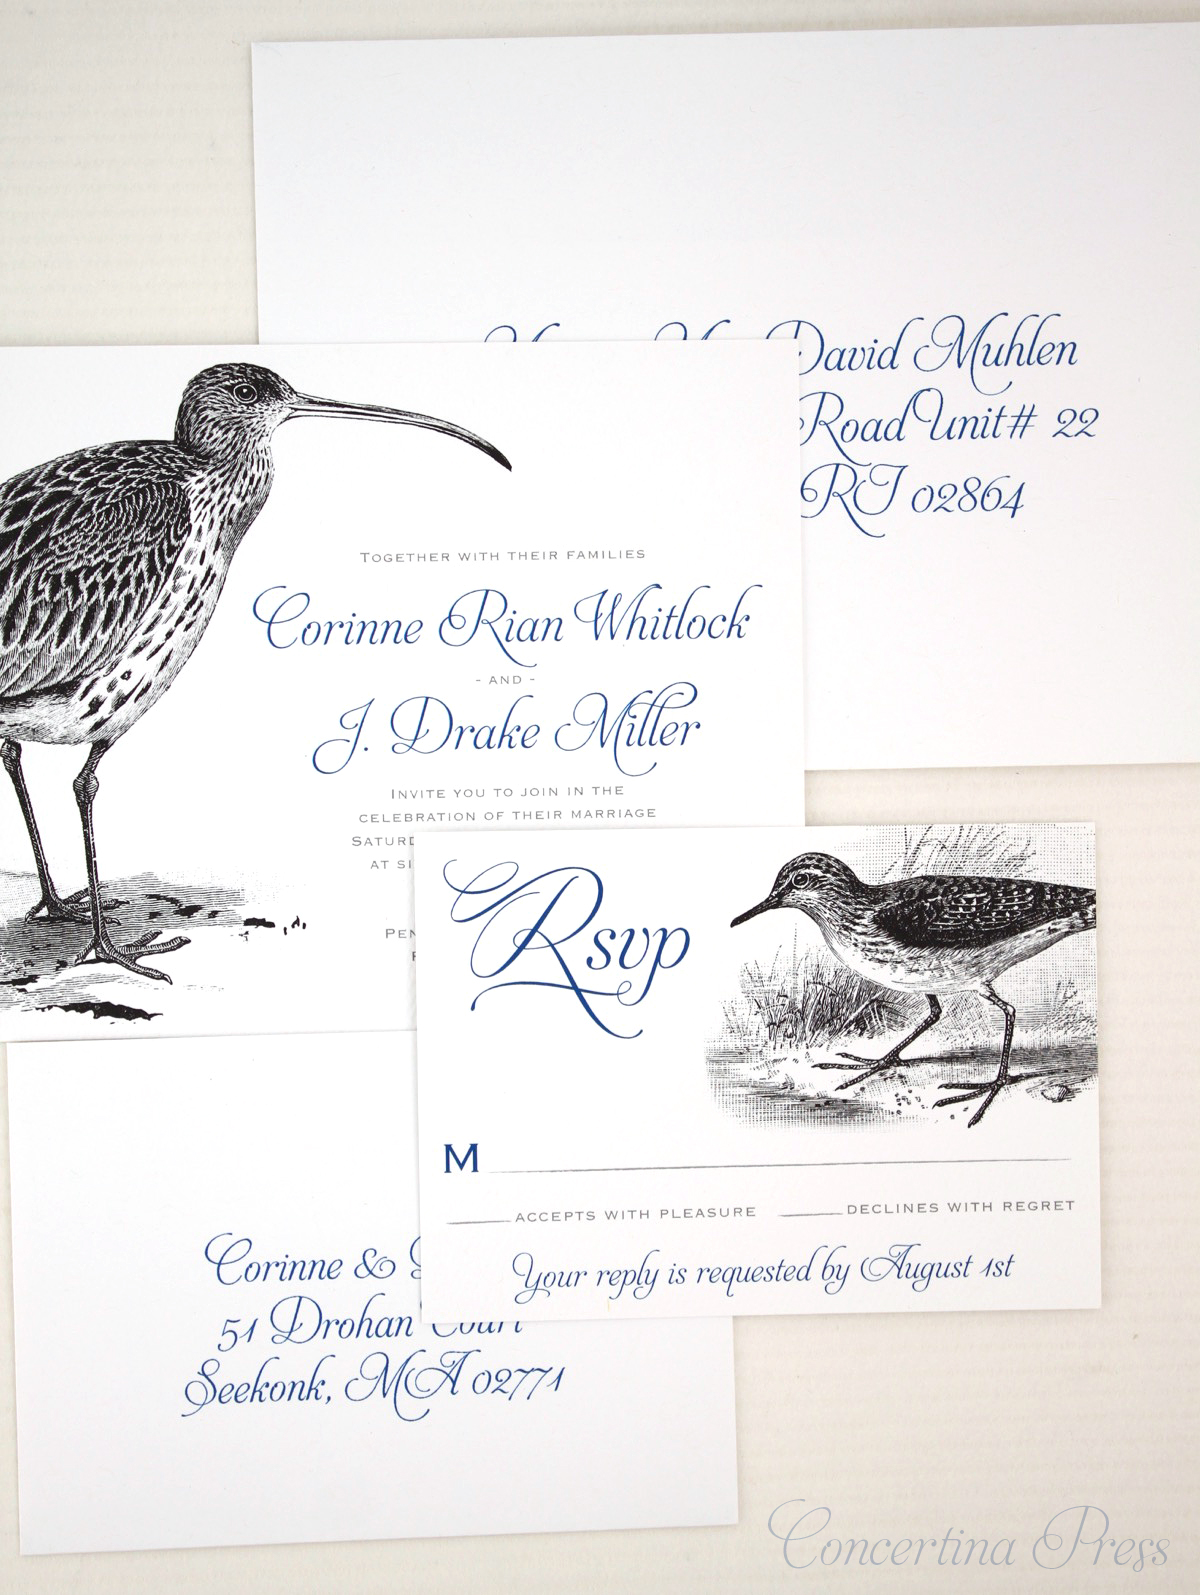 David Muhlen
Road Unit# 22
RI 02864
Together with their families
Corinne Rian Whitlock
- and -
J. Drake Miller
Invite you to join in the
celebration of their marriage
at
Rsvp
M
accepts with pleasure declines with regret
Your reply is requested by August 1st
Corinne &
51 Drohan Court
Seekonk, MA 02771
Concertina Press